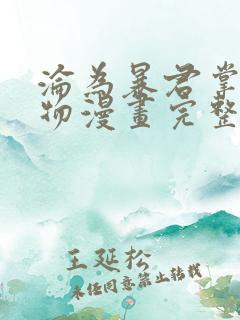 淪為暴君掌
物漫畫完整
王延松
未经同意禁止转载